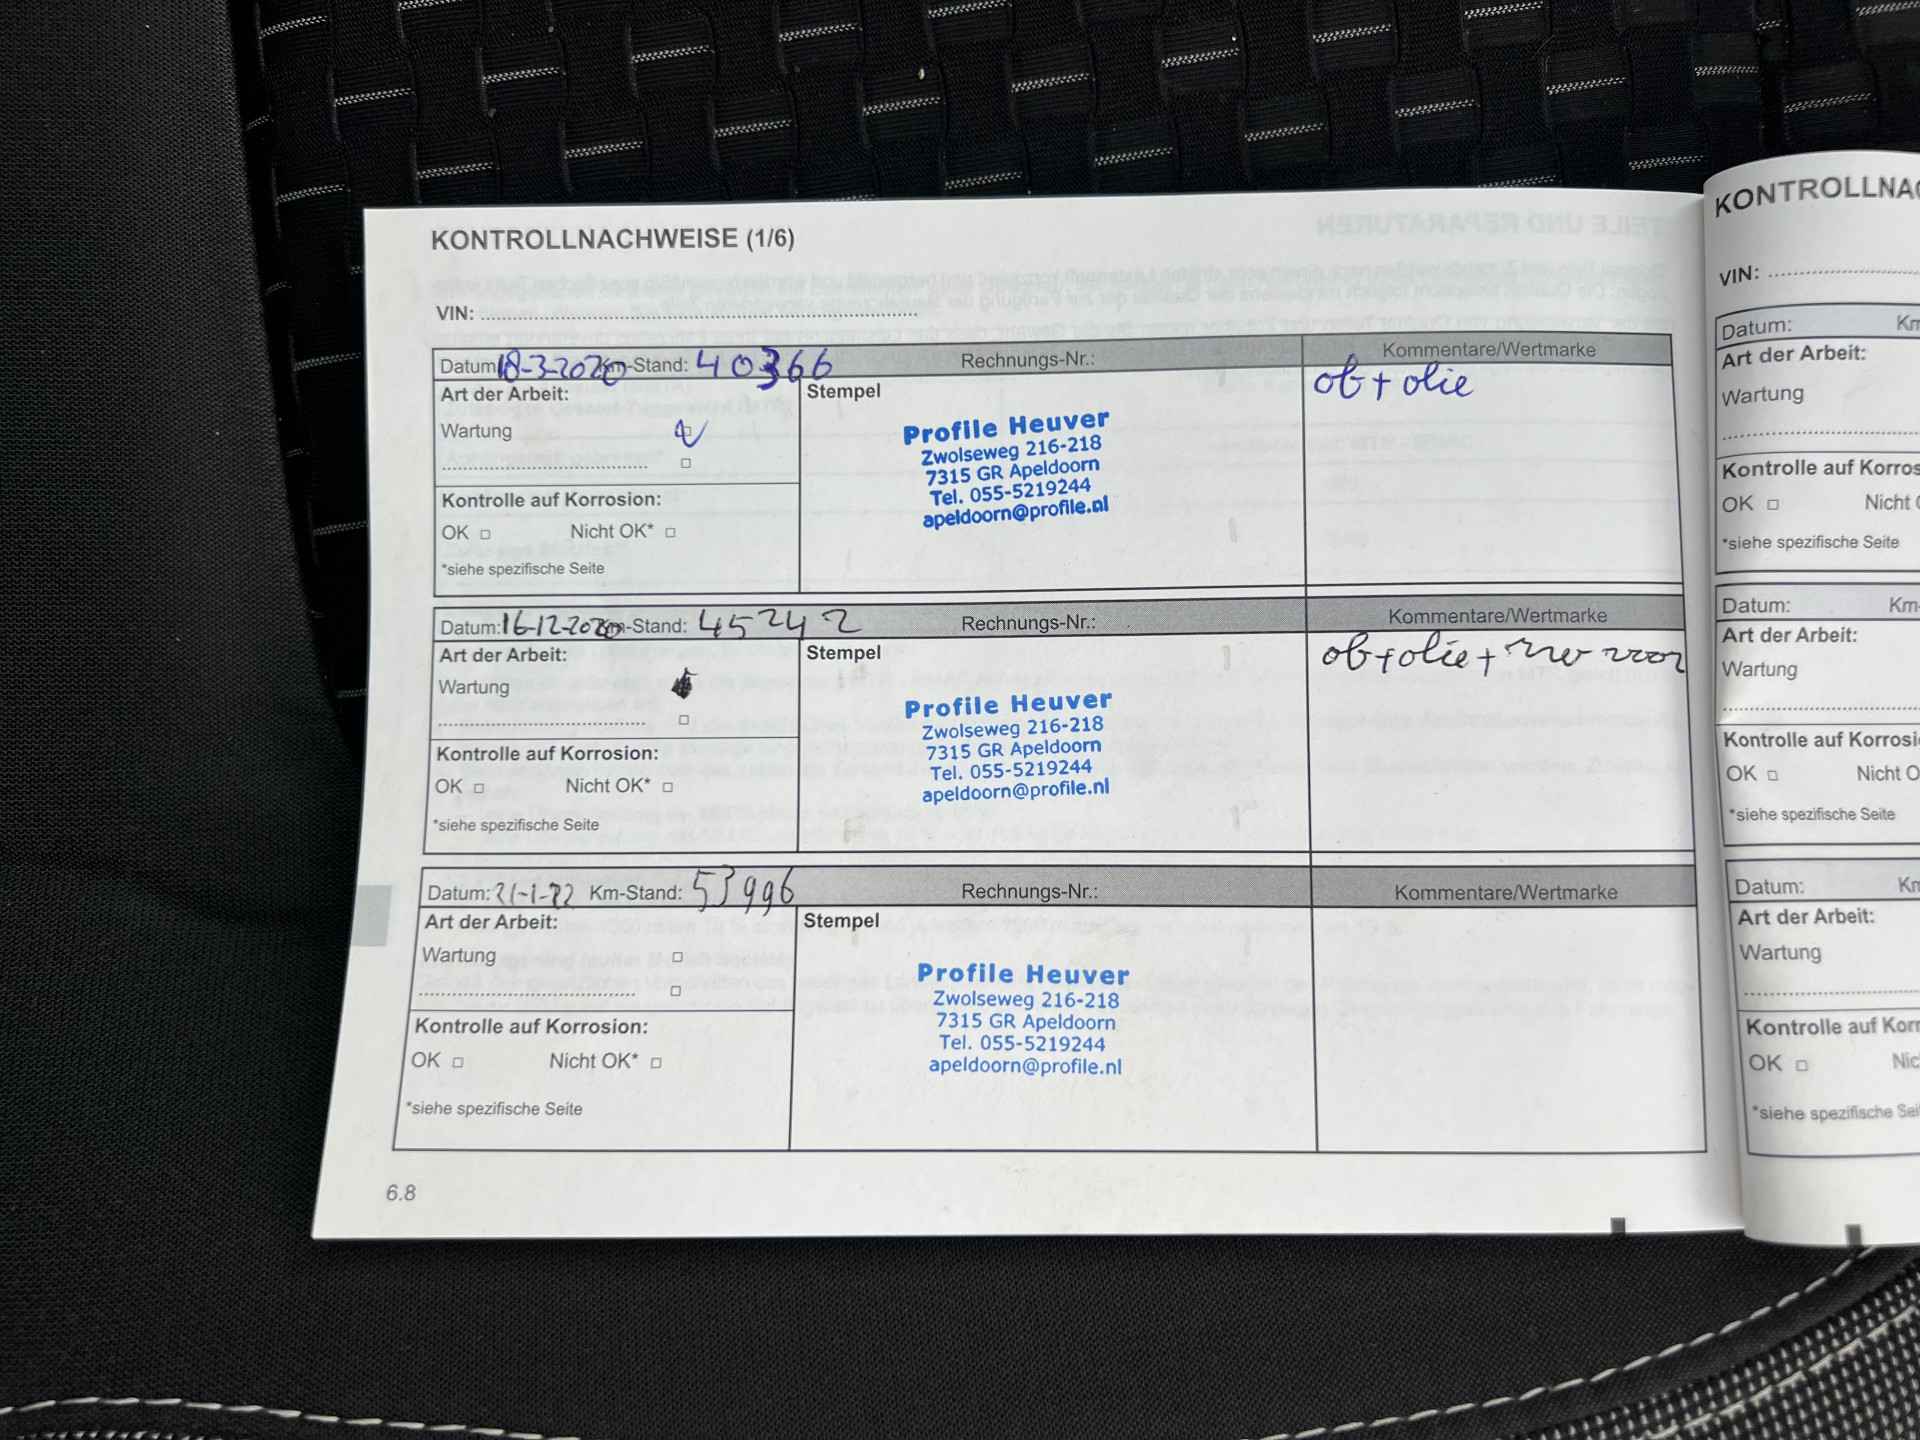 KONTROLLNACHWEISE (1/6)
VIN:
Datum: 18-3-2020 Km-Stand: 40366 Rechnungs-Nr.: Kommentare/Wertmarke
Art der Arbeit: Stempel ob + olie
Wartung
Profile Heuver
Zwolseweg 216-218
7315 GR Apeldoorn
Tel. 055-5219244
apeldoorn@profile.nl
Kontrolle auf Korrosion:
OK Nicht OK*
*siehe spezifische Seite
Datum: 16-12-2020 Km-Stand: 45242 Rechnungs-Nr.: Kommentare/Wertmarke
Art der Arbeit: Stempel ob + olie +
Wartung
Profile Heuver
Zwolseweg 216-218
7315 GR Apeldoorn
Tel. 055-5219244
apeldoorn@profile.nl
Kontrolle auf Korrosion:
OK Nicht OK*
*siehe spezifische Seite
Datum: 21-1-22 Km-Stand: 53996 Rechnungs-Nr.: Kommentare/Wertmarke
Art der Arbeit: Stempel
Wartung
Profile Heuver
Zwolseweg 216-218
7315 GR Apeldoorn
Tel. 055-5219244
apeldoorn@profile.nl
Kontrolle auf Korrosion:
OK Nicht OK*
*siehe spezifische Seite
6.8
KONTROLLNAC
VIN:
Datum: Km
Art der Arbeit:
Wartung
Kontrolle auf Korros
OK Nicht
*siehe spezifische Seite
Datum: Km-
Art der Arbeit:
Wartung
Kontrolle auf Korrosi
OK Nicht O
*siehe spezifische Seite
Datum: Km
Art der Arbeit:
Wartung
Kontrolle auf Korr
OK Nic
*siehe spezifische Sei